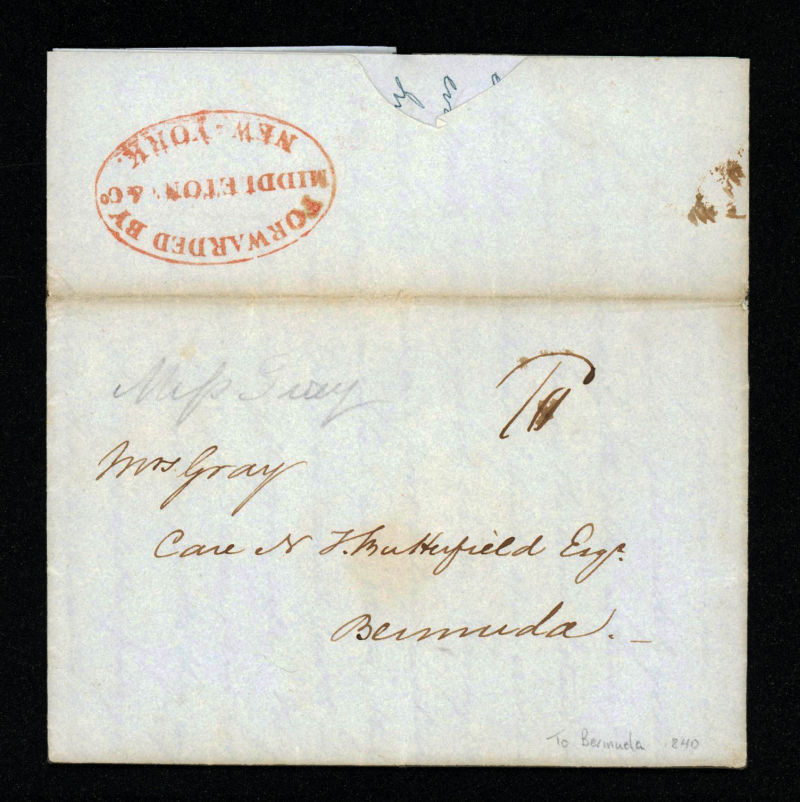 FORWARDED BY
MIDDLETON & Co
NEW-YORK.
Miss Gray
Mrs. Gray
Care N T. Butterfield Esqr.
Bermuda. _
To Bermuda 1840